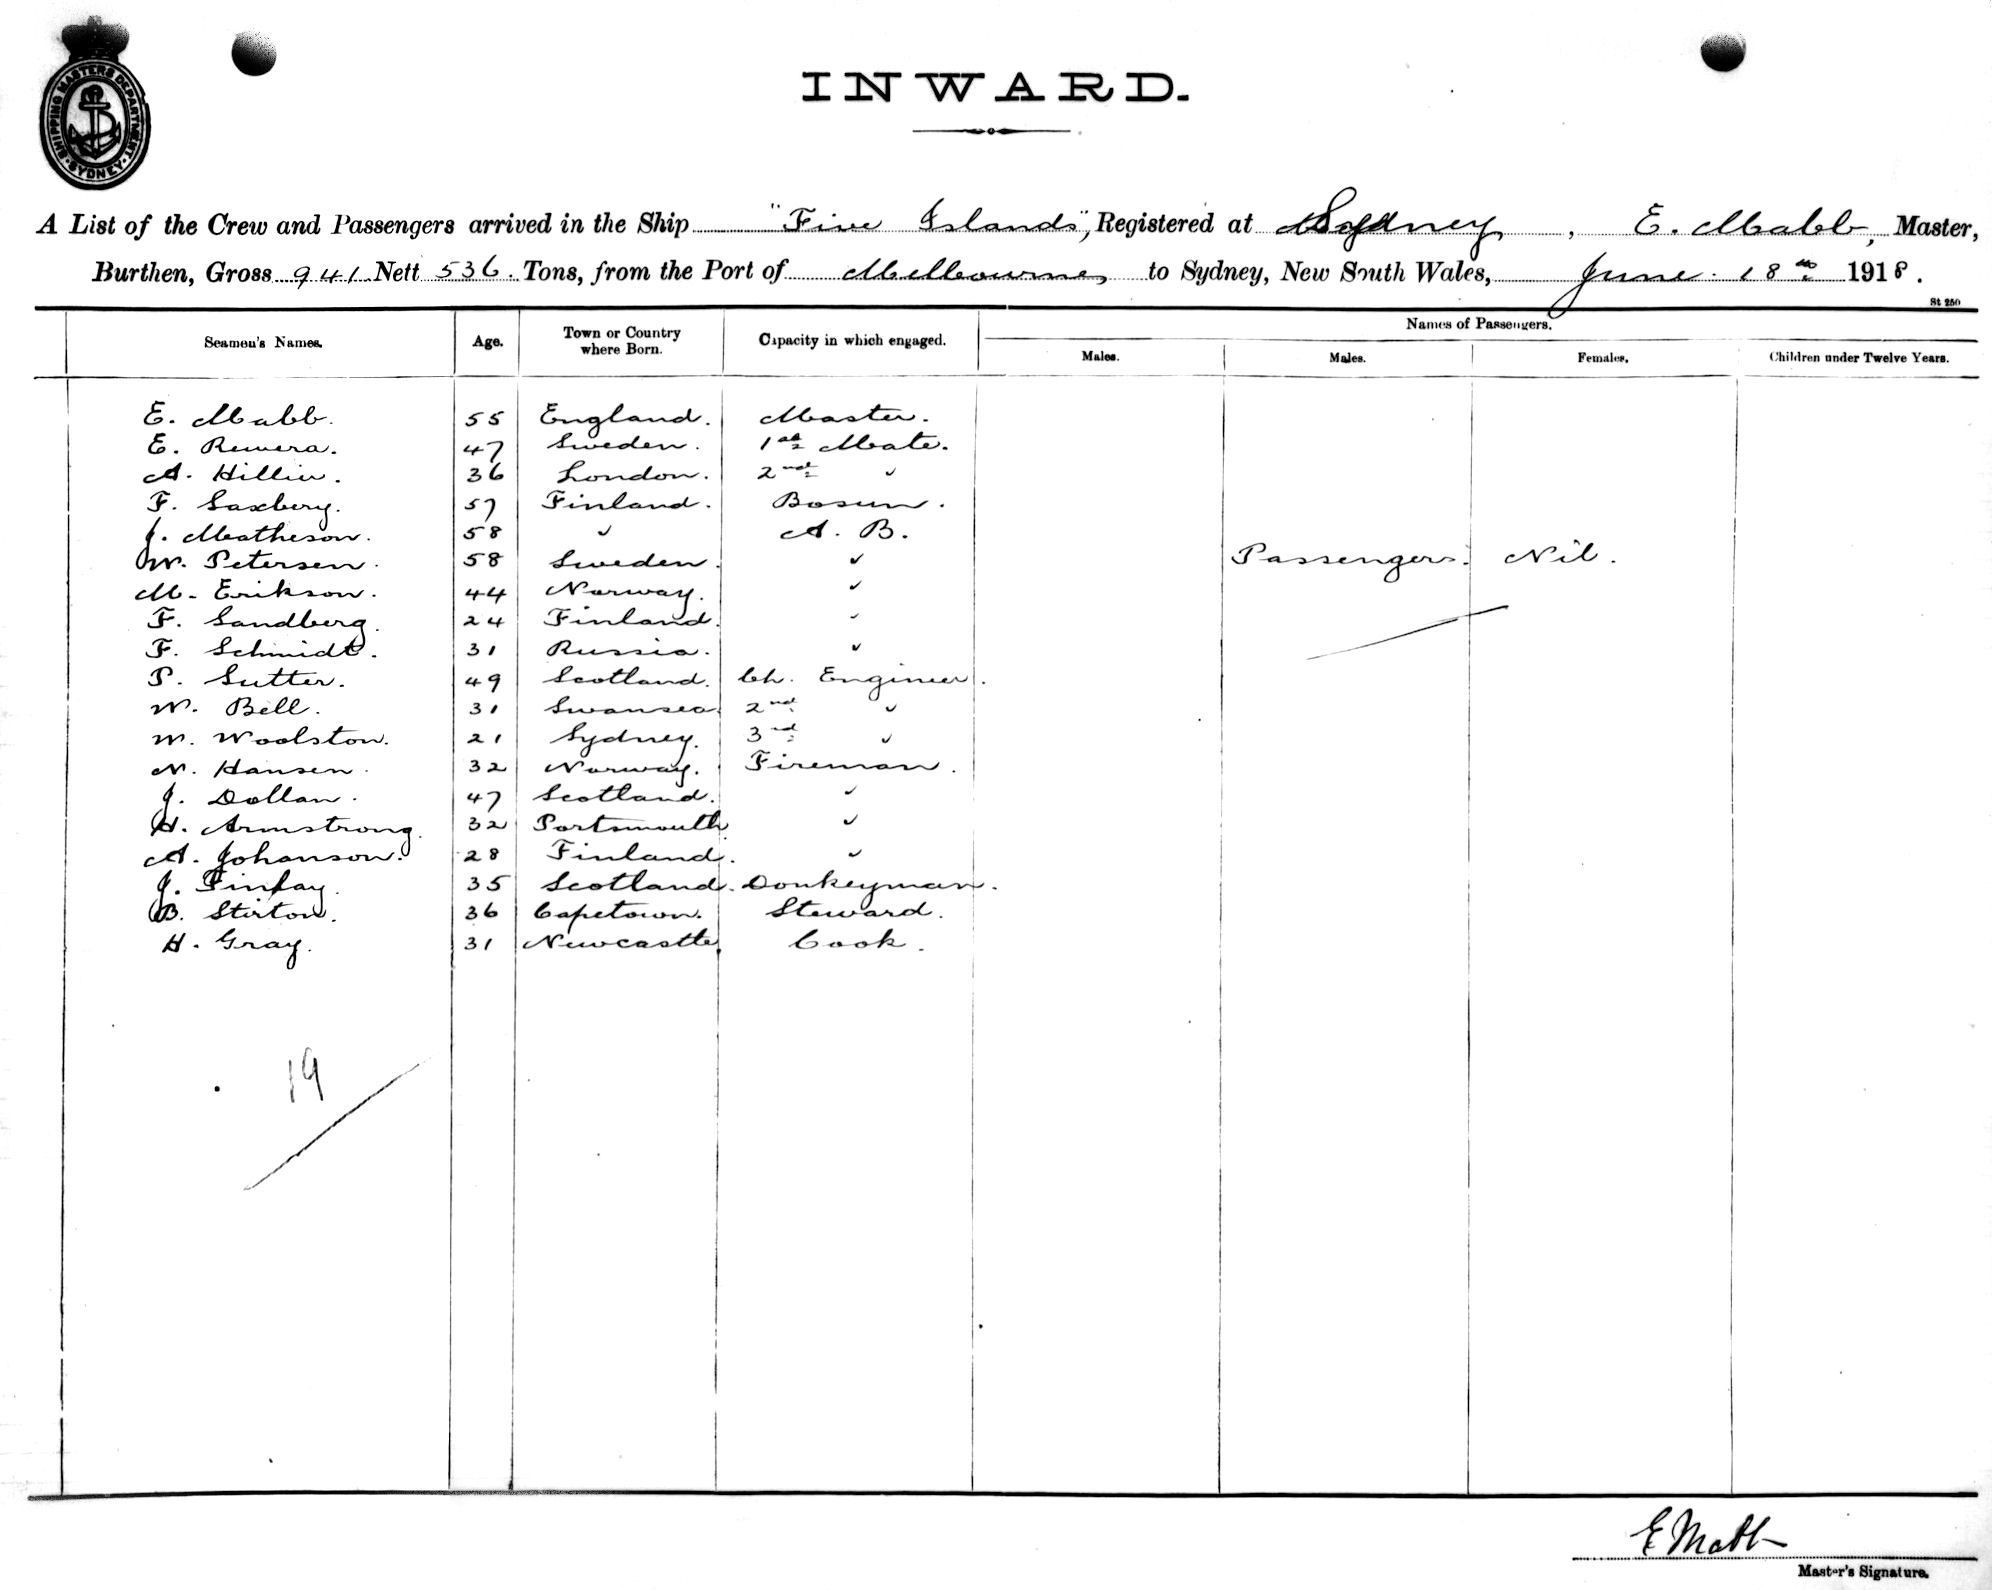 SHIPPING MASTERS DEPARTMENT · SYDNEY ·
INWARD.
A List of the Crew and Passengers arrived in the Ship "Five Islands", Registered at Sydney, E. Mabb, Master,
Burthen, Gross 941 Nett 536. Tons, from the Port of Melbourne, to Sydney, New South Wales, June 18th 1918.
St 250
Seamen's Names. Age. Town or Country where Born. Capacity in which engaged. Names of Passengers.
Males. Males. Females. Children under Twelve Years.
E. Mabb. 55 England. Master.
E. 47 Sweden. 1st Mate.
A. Hillier. 36 London. 2nd "
F. Saxberg. 57 Finland. Bosun.
J. Matheson. 58 " A. B.
W. Petersen. 58 Sweden. " Passengers. Nil.
M. Erikson. 44 Norway. "
F. Sandberg. 24 Finland. "
F. Schmidt. 31 Russia. "
P. Sutter. 49 Scotland. Ch. Engineer.
W. Bell. 31 Swansea. 2nd "
W. Woolston. 21 Sydney. 3rd "
N. Hansen. 32 Norway. Fireman.
J. Dollan. 47 Scotland. "
H. Armstrong. 32 Portsmouth "
A. Johanson. 28 Finland. "
J. Finlay. 35 Scotland. Donkeyman.
B. Stirton. 36 Capetown. Steward.
H. Gray. 31 Newcastle. Cook.
19
E Mabb
Master's Signature.